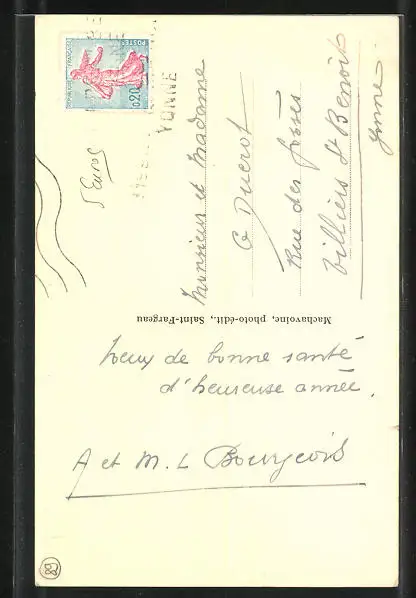 RÉPUBLIQUE FRANÇAISE
POSTES
0,20
YONNE
5 Euros
Monsieur et Madame
G Ducrot
Rue des fossés
Villiers St Benoît
Yonne
Machavoine, photo-édit., Saint-Fargeau
Voeux de bonne santé
d'heureuse année.
A et M. L Bourgeois
89